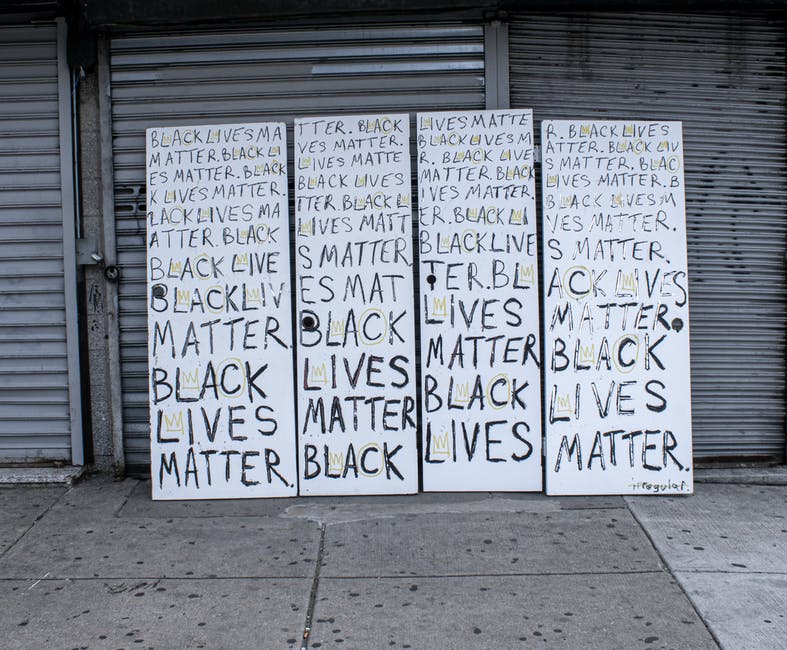 BLACK LIVES MA
MATTER. BLACK LI
ES MATTER. BLACK
K LIVES MATTER.
LACK LIVES MA
ATTER. BLACK
BLACK LIVE
BLACK LIV
MATTER
BLACK
LIVES
MATTER.
TTER. BLACK
VES MATTER.
LIVES MATTE
BLACK LIVES
TTER. BLACK L
LIVES MATT
S MATTER
ES MAT
BLACK
LIVES
MATTER
BLACK
LIVES MATTE
BLACK LIVES M
R. BLACK LIVE
MATTER. BLACK
LIVES MATTER.
ER. BLACK LI
BLACK LIVE
TER. BL
LIVES
MATTER
BLACK
LIVES
R. BLACK LIVES
ATTER. BLACK LIV
S MATTER. BLAC
LIVES MATTER. B
BLACK LIVES M
VES MATTER.
S MATTER.
ACK LIVES
MATTER.
BLACK
LIVES
MATTER.
irregular.